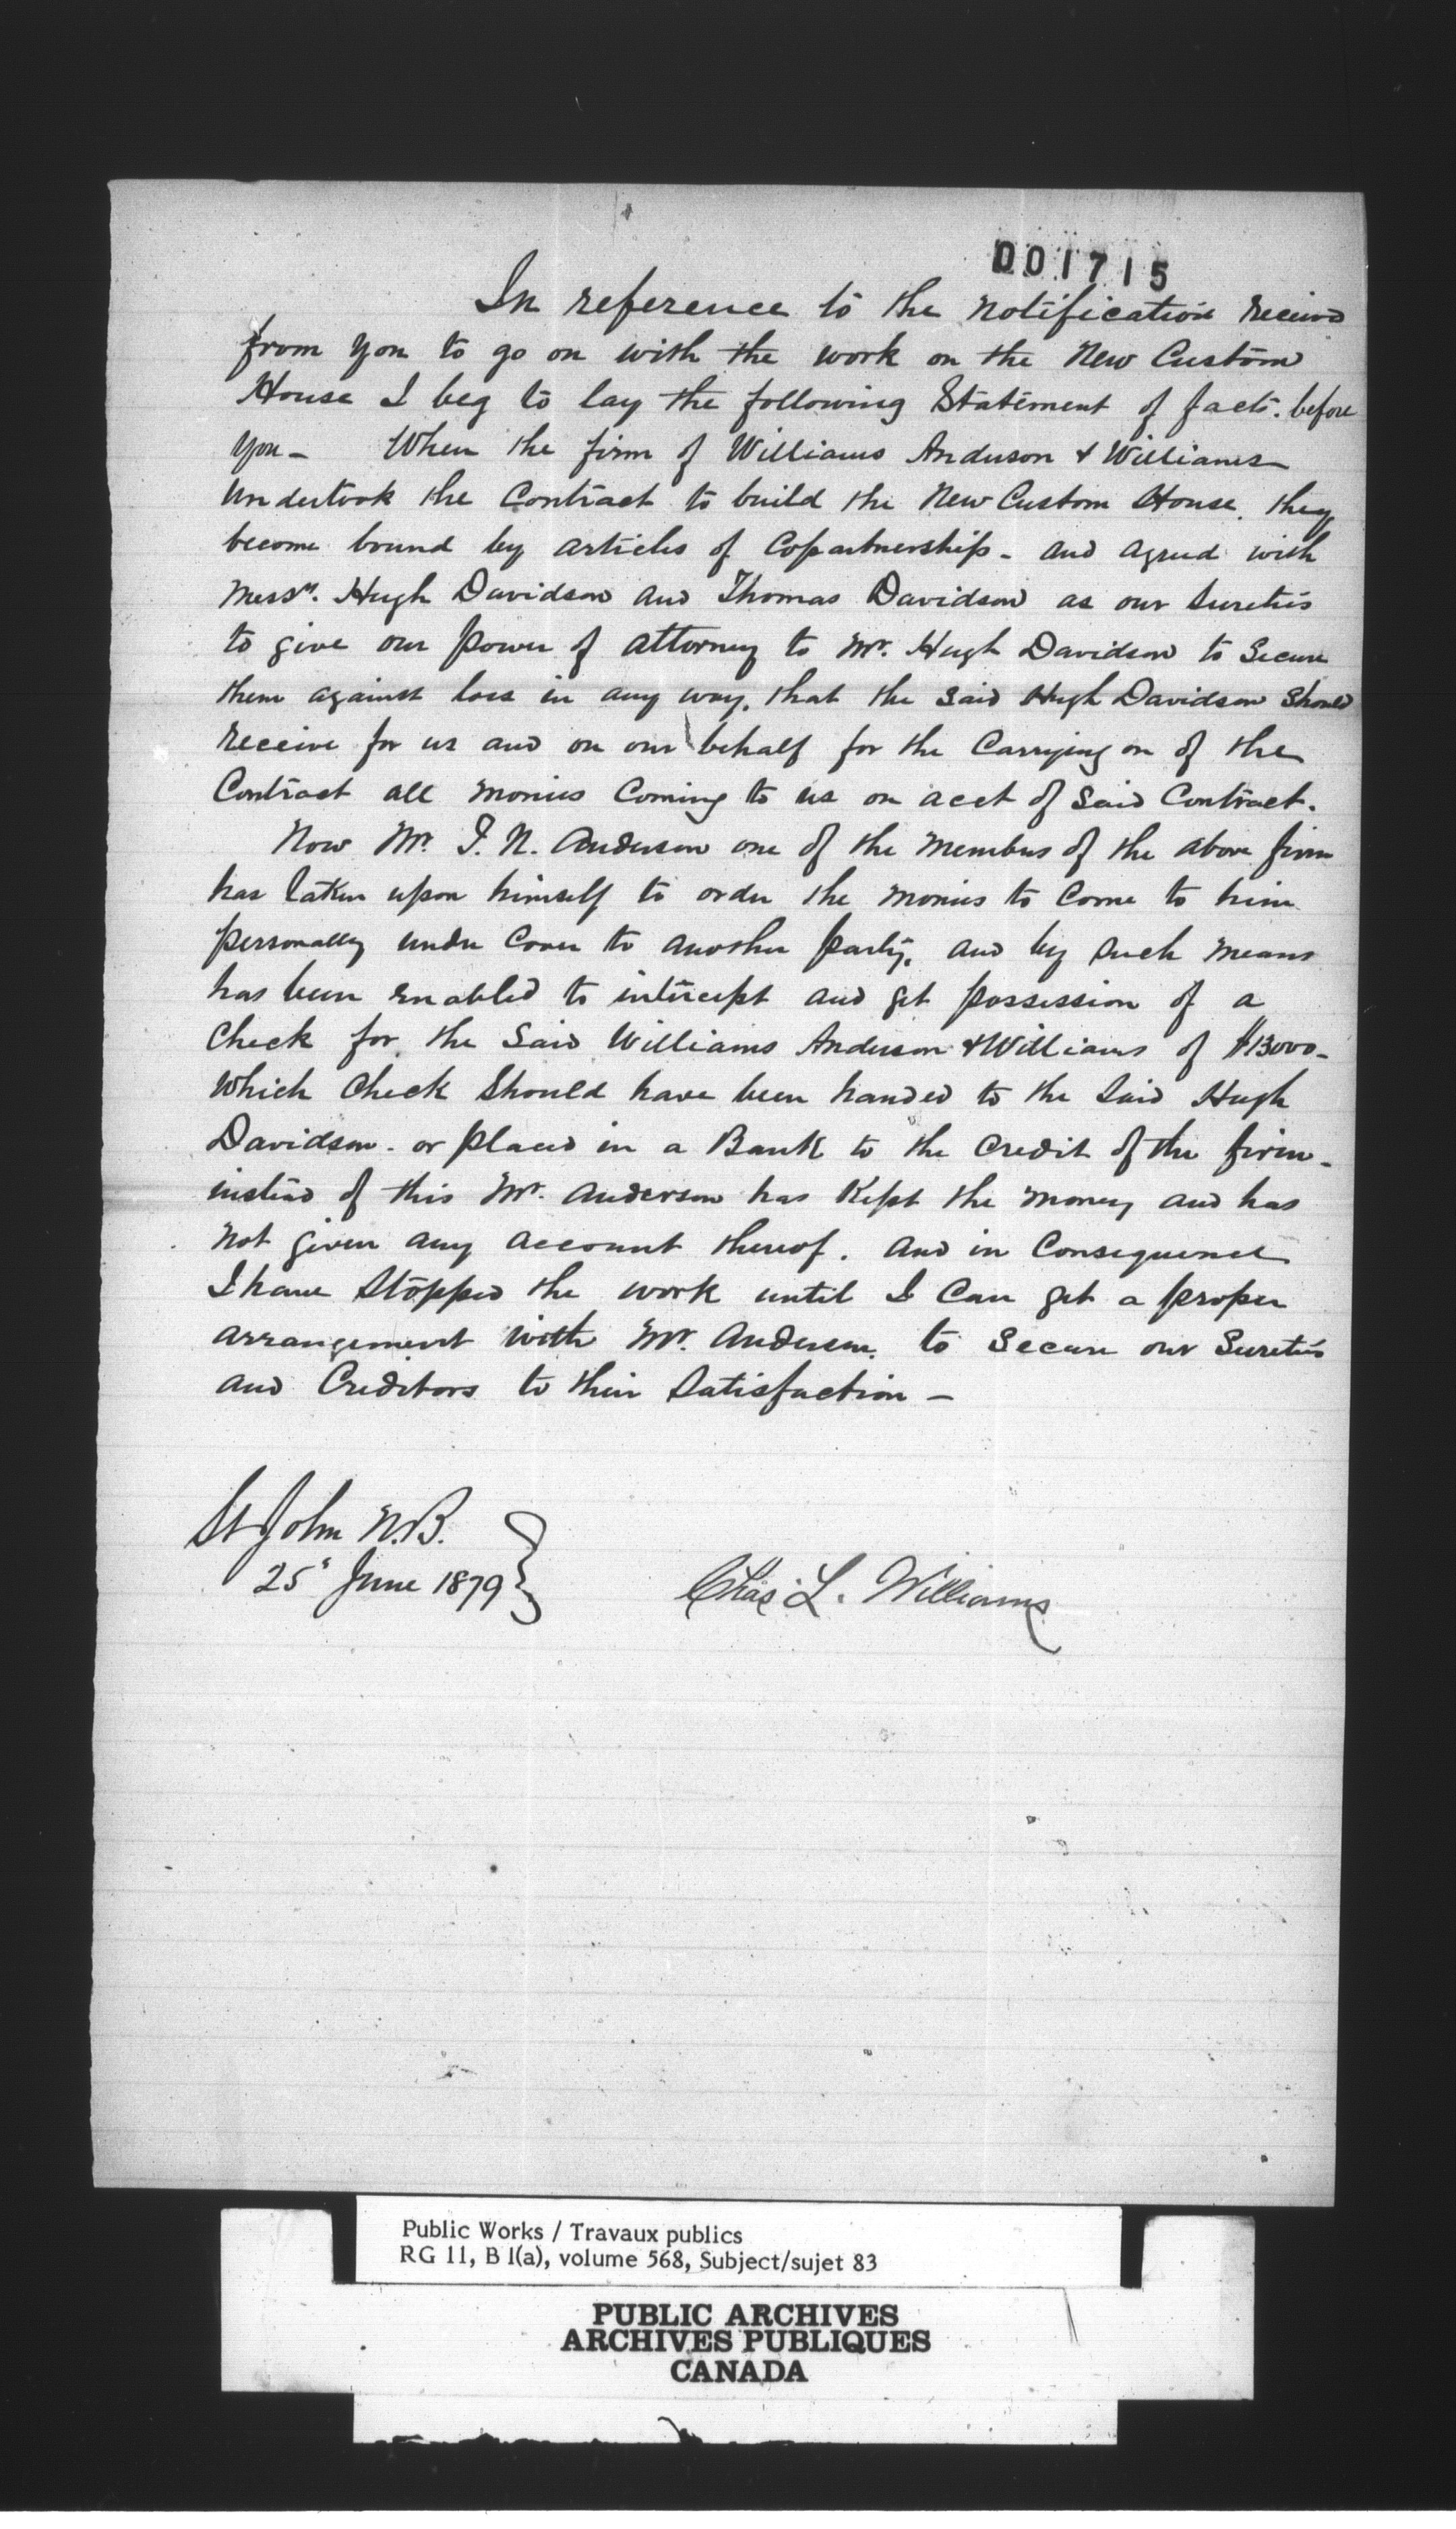 001715
In reference to the notification received
from you to go on with the work on the New Custom
House I beg to lay the following Statement of facts. before
you – When the firm of Williams Anderson & Williams
undertook the Contract to build the New Custom House. they
become bound by articles of Copartnership – and agreed with
Messrs. Hugh Davidson and Thomas Davidson as our Sureties
to give our power of attorney to Mr. Hugh Davidson to Secure
them against loss in any way. that the said Hugh Davidson should
receive for us and on our behalf for the Carrying on of the
Contract all monies Coming to us on acct of Said Contract.
Now Mr. J. N. Anderson one of the members of the above firm
has taken upon himself to order the monies to Come to him
personally under Cover to another party, and by such means
has been enabled to intercept and get possession of a
Check for the Said Williams Anderson & Williams of $13000–
which Check Should have been handed to the Said Hugh
Davidson – or placed in a Bank to the Credit of the firm –
instead of this Mr. Anderson has Kept the money and has
not given any account thereof. and in Consequence
I have Stopped the work until I Can get a proper
arrangement with Mr. Anderson. to Secure our Sureties
and Creditors to their Satisfaction –
St John N.B.
25" June 1879
Chas. L. Williams
Public Works / Travaux publics
RG 11, B 1(a), volume 568, Subject/sujet 83
PUBLIC ARCHIVES
ARCHIVES PUBLIQUES
CANADA